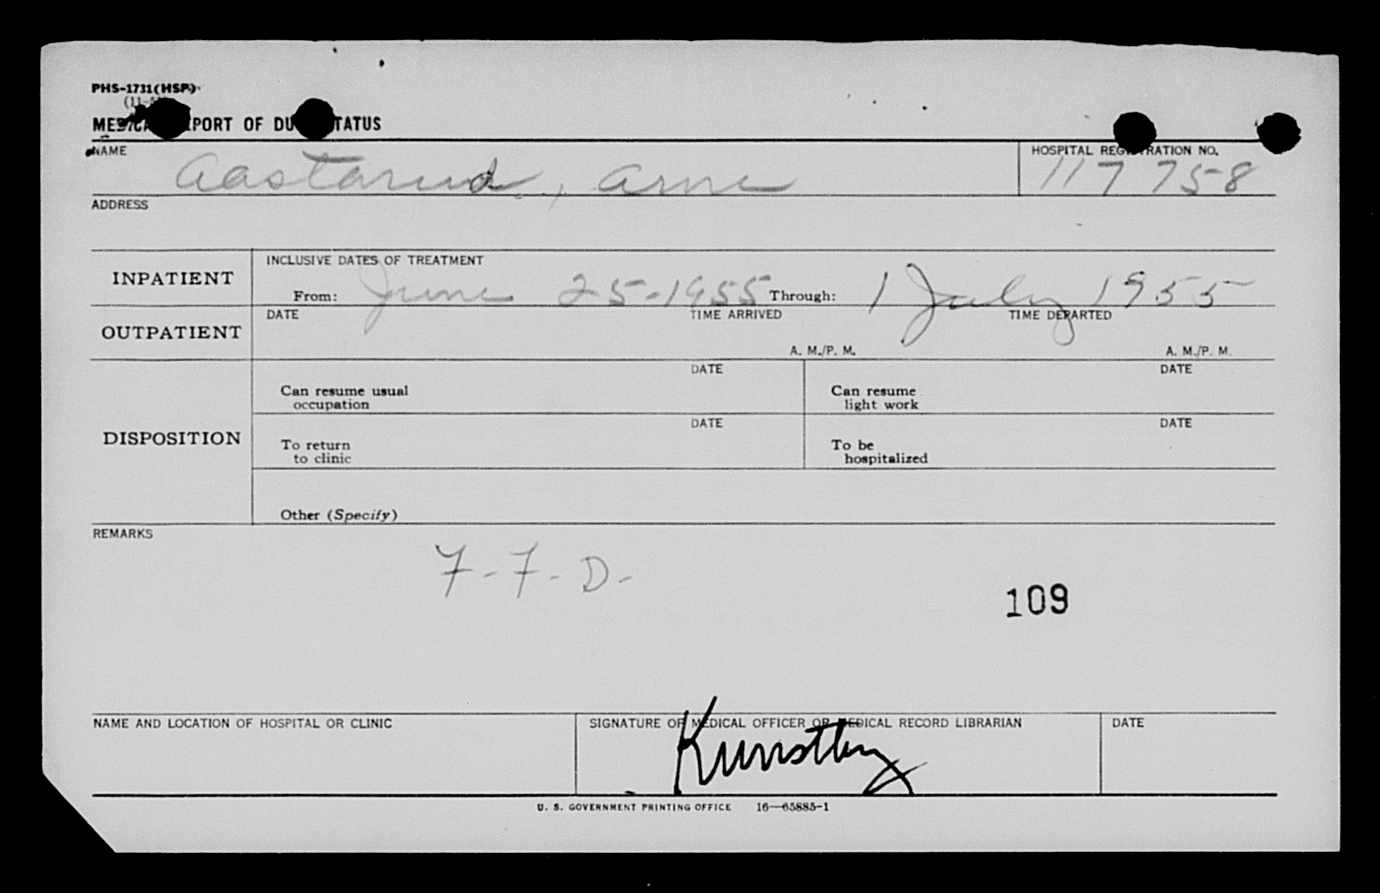 PHS-1731(HSP)
MEDICAL REPORT OF DUTY STATUS
NAME
Aastarud, Arne
HOSPITAL REGISTRATION NO.
117758
ADDRESS
INPATIENT
INCLUSIVE DATES OF TREATMENT
From: June 25-1955 Through: 1 July 1955
OUTPATIENT
DATE TIME ARRIVED TIME DEPARTED
A. M./P. M. A. M./P. M.
DISPOSITION
Can resume usual
occupation
DATE
Can resume
light work
DATE
To return
to clinic
DATE
To be
hospitalized
DATE
Other (Specify)
REMARKS
F-F-D-
109
NAME AND LOCATION OF HOSPITAL OR CLINIC
SIGNATURE OF MEDICAL OFFICER OR MEDICAL RECORD LIBRARIAN
DATE
U. S. GOVERNMENT PRINTING OFFICE 16—65885-1